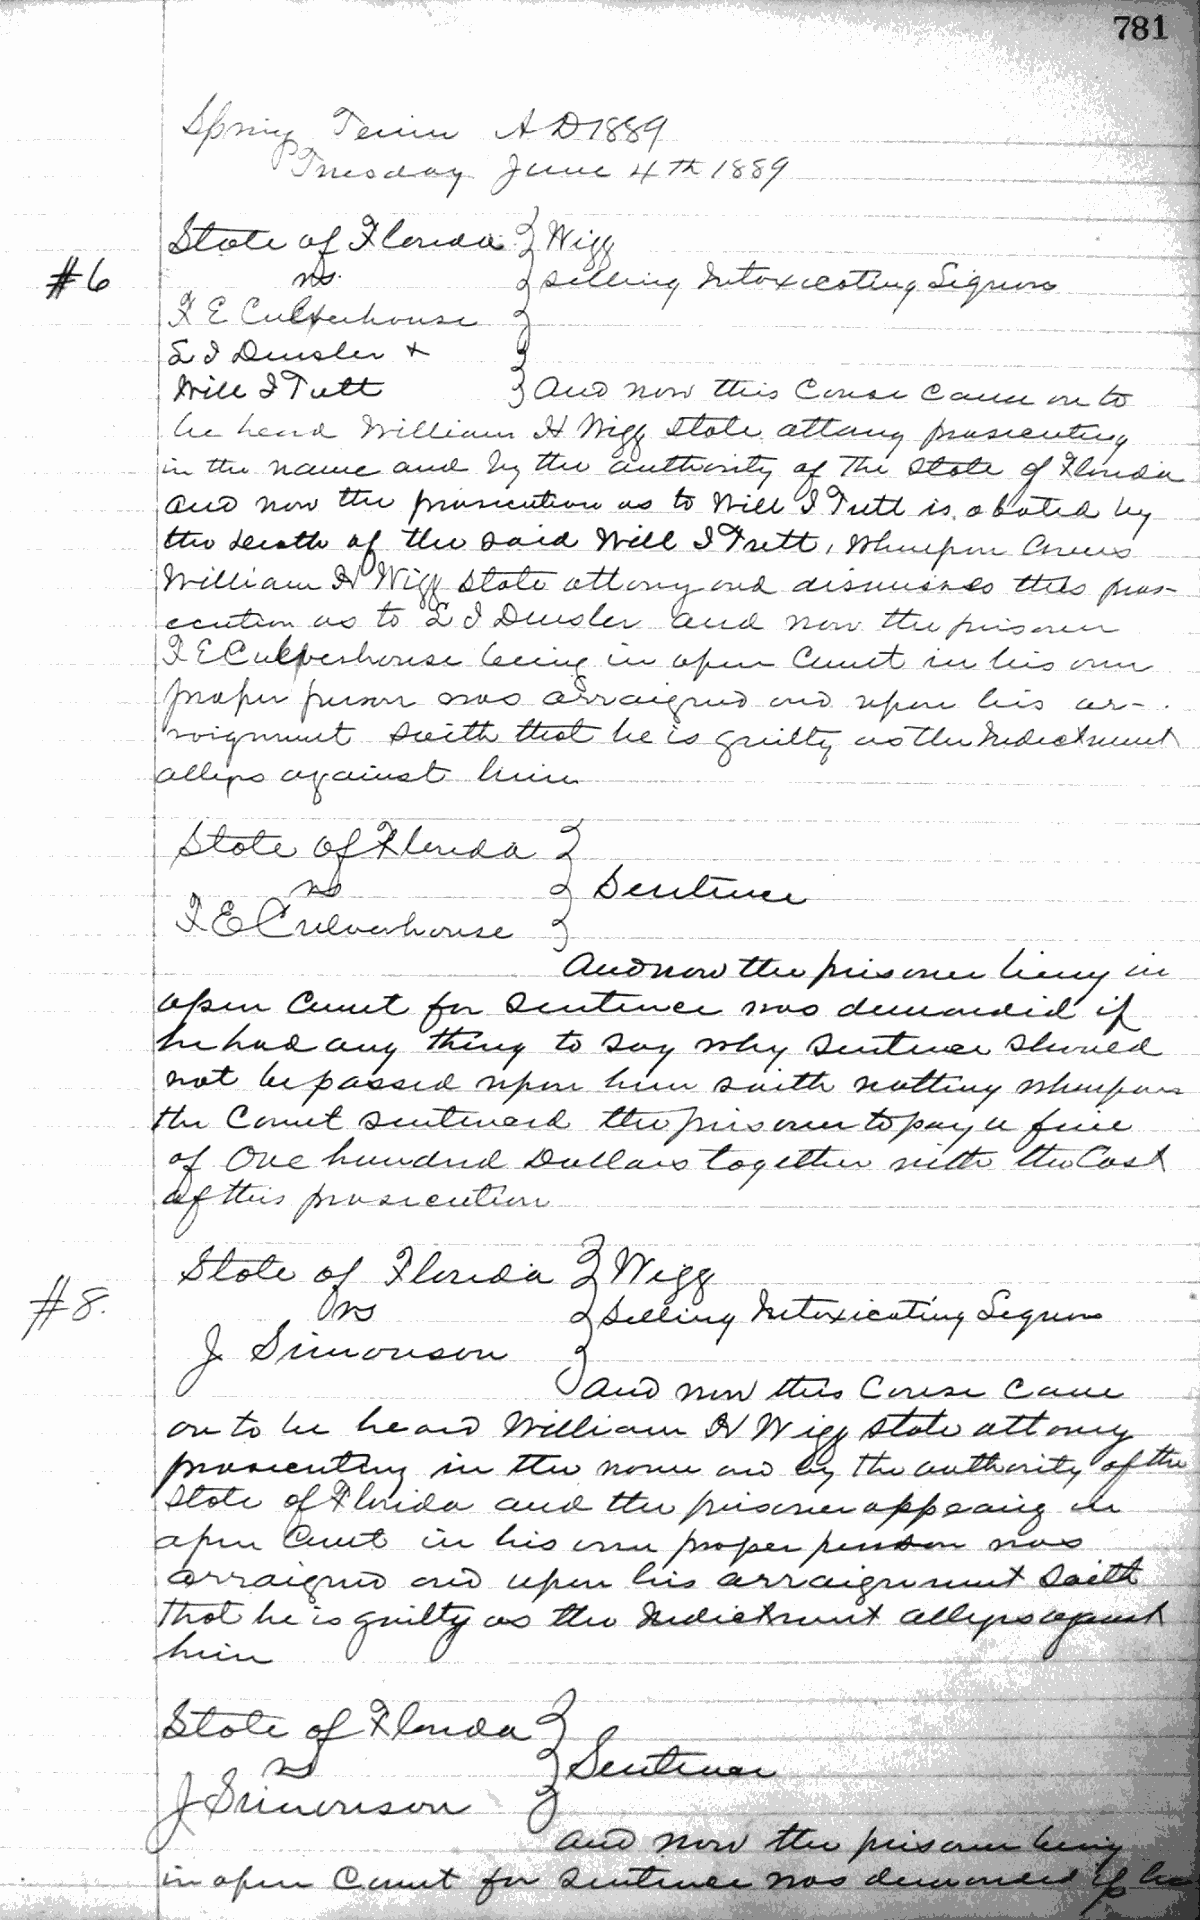 781
Spring Term A D 1889
Tuesday June 4th 1889
State of Florida } Wigg
#6 vs. } Selling Intoxicating Liquors
F E Culverhouse }
L I Deusler + }
Will I Tutt } And now this Couse Came on to
be heard William H Wigg State attony prosecuting
in the name and by the authority of The State of Florida
and now the prosecution as to Will I Tutt is abated by
the death of the said Will I Tutt, Wheupon Comes
William H Wigg State attony and dismisses this pros-
ecution as to L I Deusler and now the prisoner
F E Culverhouse being in open Court in his own
proper person was arraigned and upon his ar-
raignment saith that he is guilty as the Indictment
alleges against him
State of Florida }
vs } Sentence
F E Culverhouse }
And now the prisoner being in
open Court for Sentence was demanded if
he had any thing to say why Sentence should
not be passed upon him saith nothing wheupon
the Court sentenced the prisoner to pay a fine
of One hundred Dollars together with the Cost
of this prosecution
State of Florida } Wigg
#8. vs } Selling Intoxicating Liquors
J Simonson }
And now this Couse Came
on to be heard William H Wigg State attony
prosecuting in the name and by the authority of the
State of Florida and the prisoner appearing in
open Court in his own proper person was
arraigned and upon his arraignment saith
that he is guilty as the Indictment alleges against
him
State of Florida }
vs } Sentence
J Simonson }
And now the prisoner being
in open Court for Sentence was demanded if he